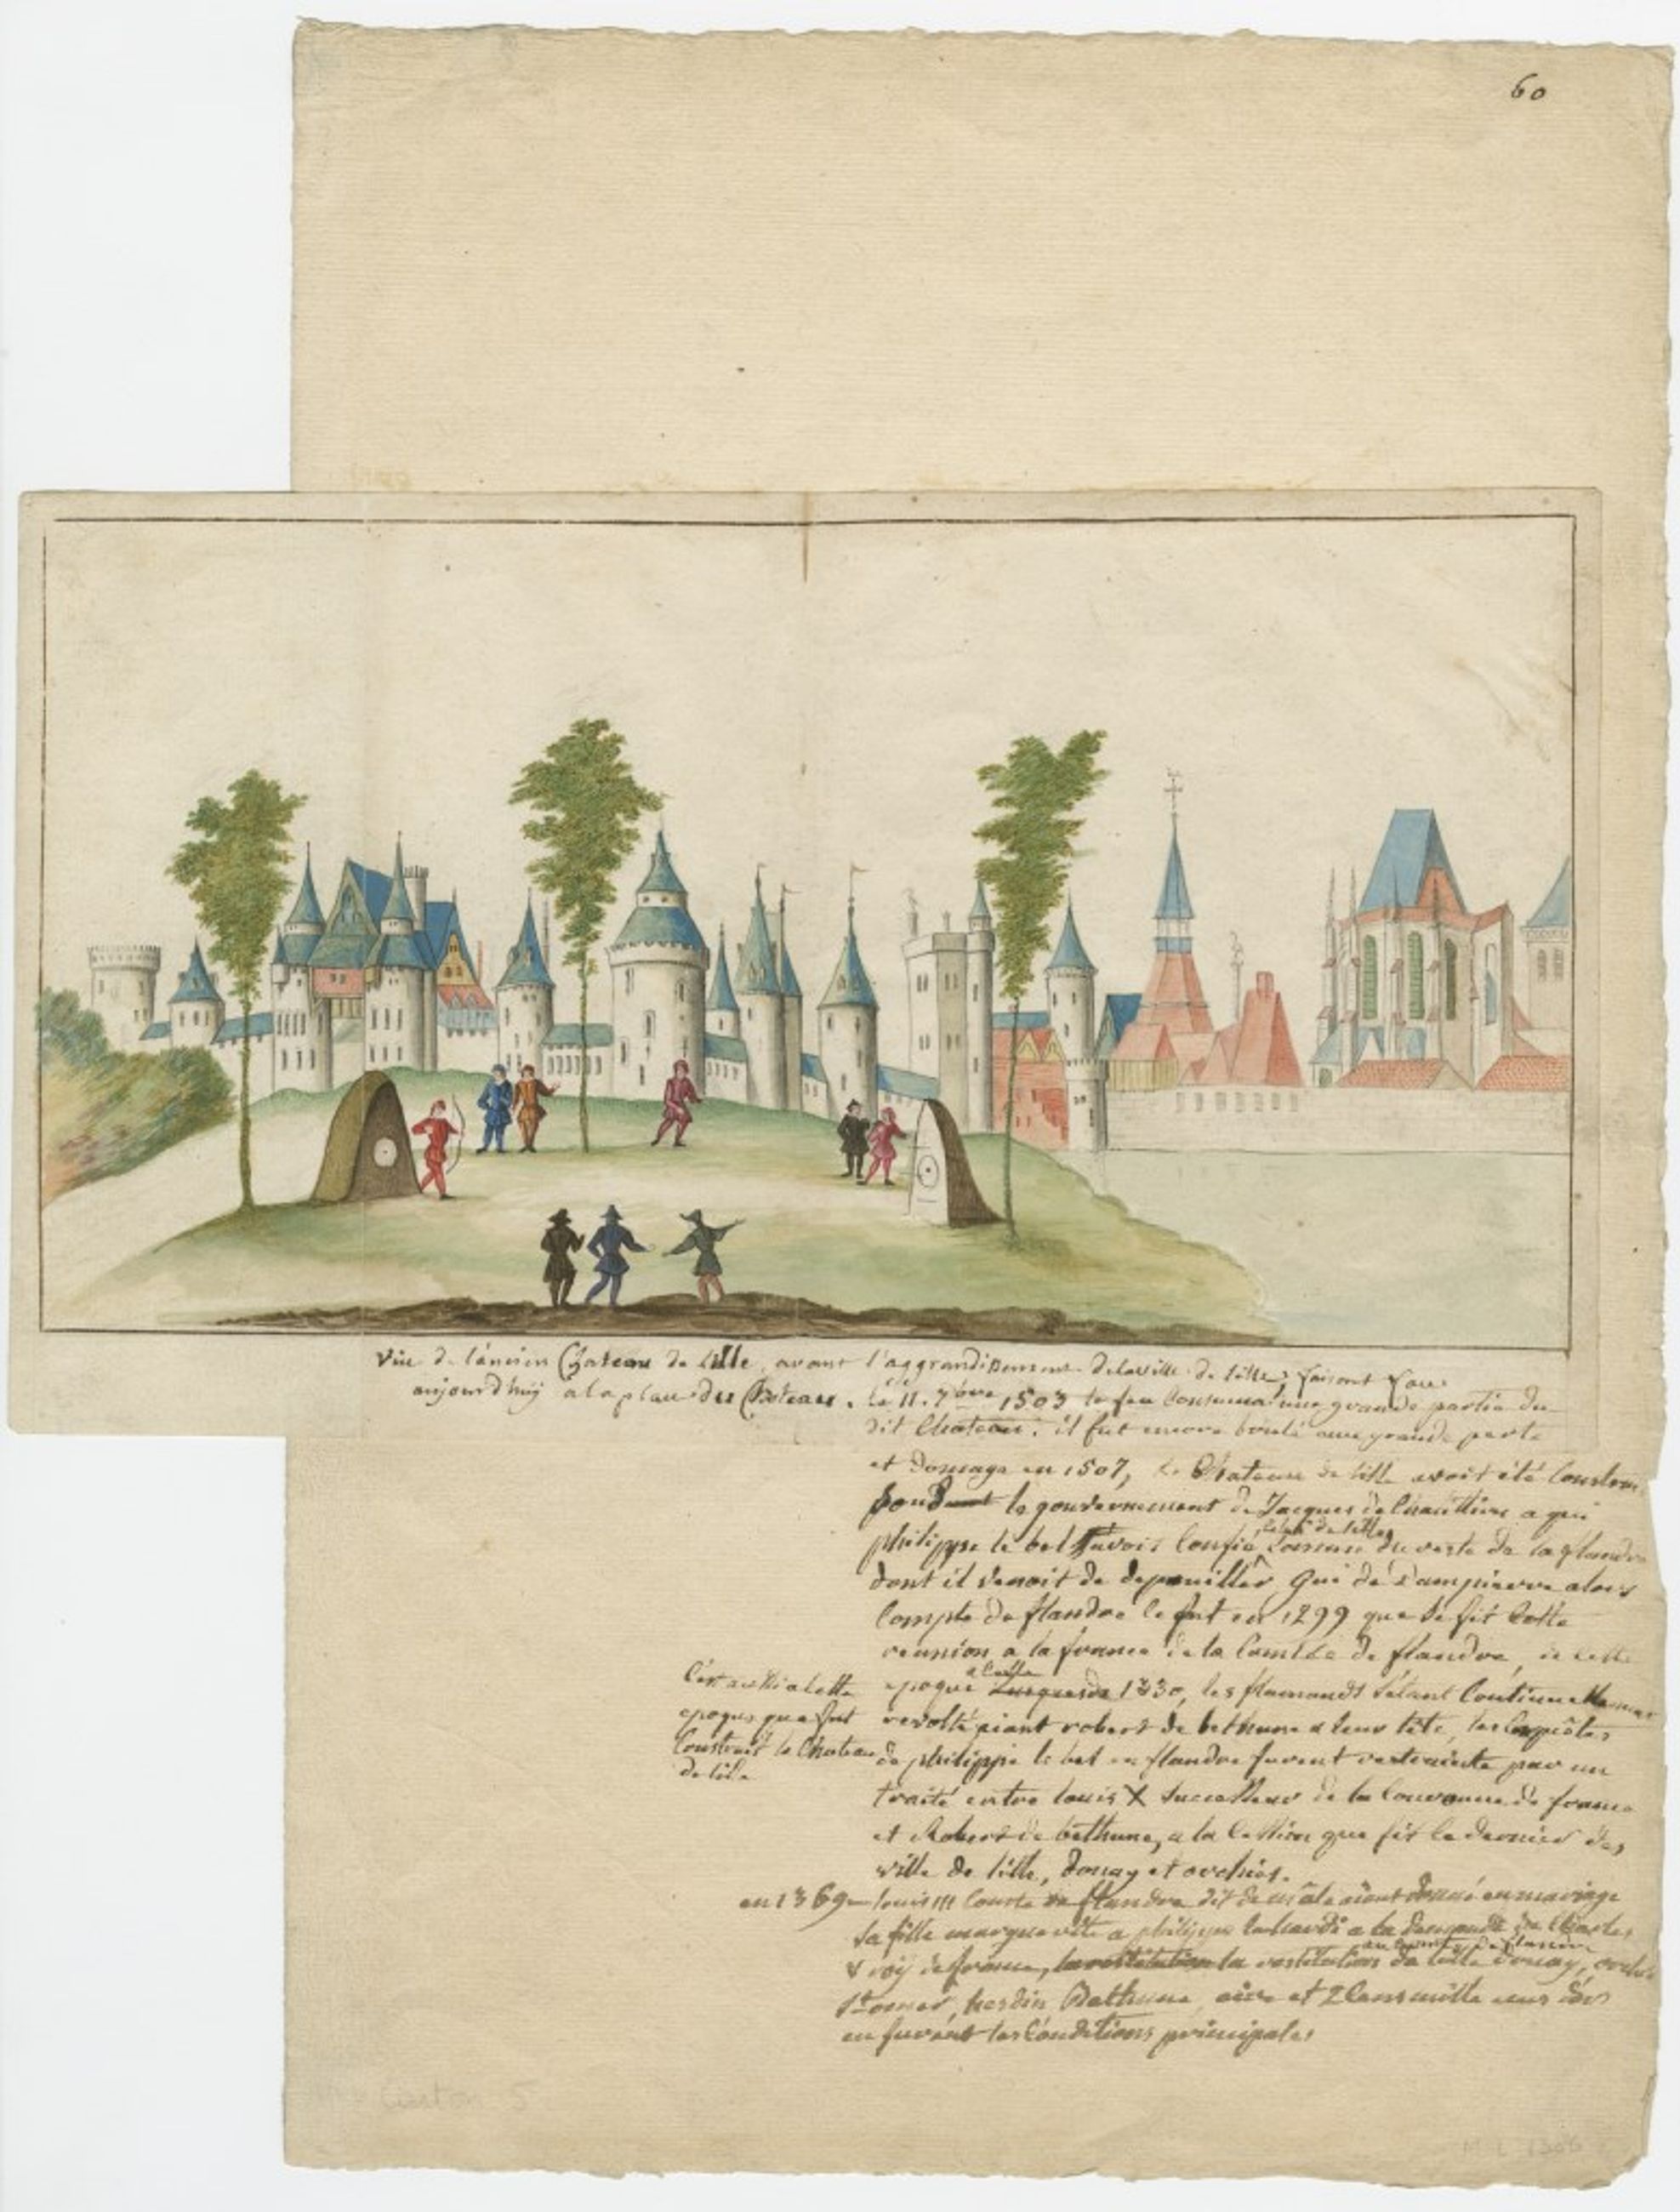 60
Vüe de l'ancien Chateau de Lille, avant l'aggrandissement de la ville de lille, faisant face
aujourd'huy a la place du Chateau. Le 11. 7bre 1503 le feu consuma une grande partie du
dit Chateau. il fut encore brulé avec grande perte
et domage en 1507, Le Chateau de lille avoit été construi
pendant le gouvernement de Jacques de a qui
philippe le bel avoit confié de lille du reste de la flandre
dont il venoit de depouiller Gui de Dampierre alors
Compte de flandre ce fut en 1299 que se fit cette
reunion a la france de la Comtée de flandre, de cette
epoque a celle 1330, les flamands s'étant continuellement
revolté aiant robert de bethune a leur tête, les Conquêtes
de philippe le bel en flandre furent par un
traité entre louis X successeur de la couronne de france
et Robert de bethune, a la cession que fit le dernier des
ville de lille, douay et orchies.
C'est aussi a cette
epoque que fut
construit le Chateau
de lille
en 1369 louis III Comte de flandre dit de mâle aiant donné en mariage
sa fille marguerite a philippe le hardi a la demande de Charles
V roy de france, la restitution la restitution au Comte de flandre de lille douay, orchies
St omer, hesdin Bethune, aire et 2 Cens mille ecus d'or
en furent les Conditions principales
Carton 5
M L 1306